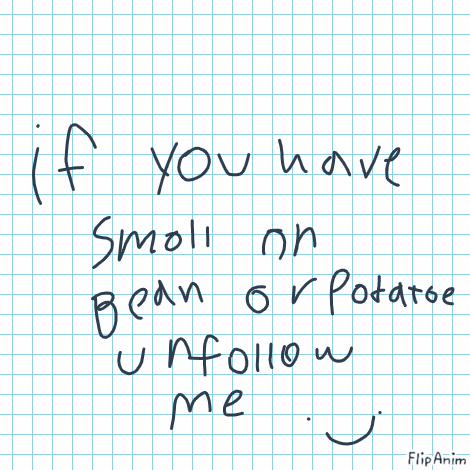 if you have
smoll on
Bean or potatoe
unfollow
me :)
FlipAnim